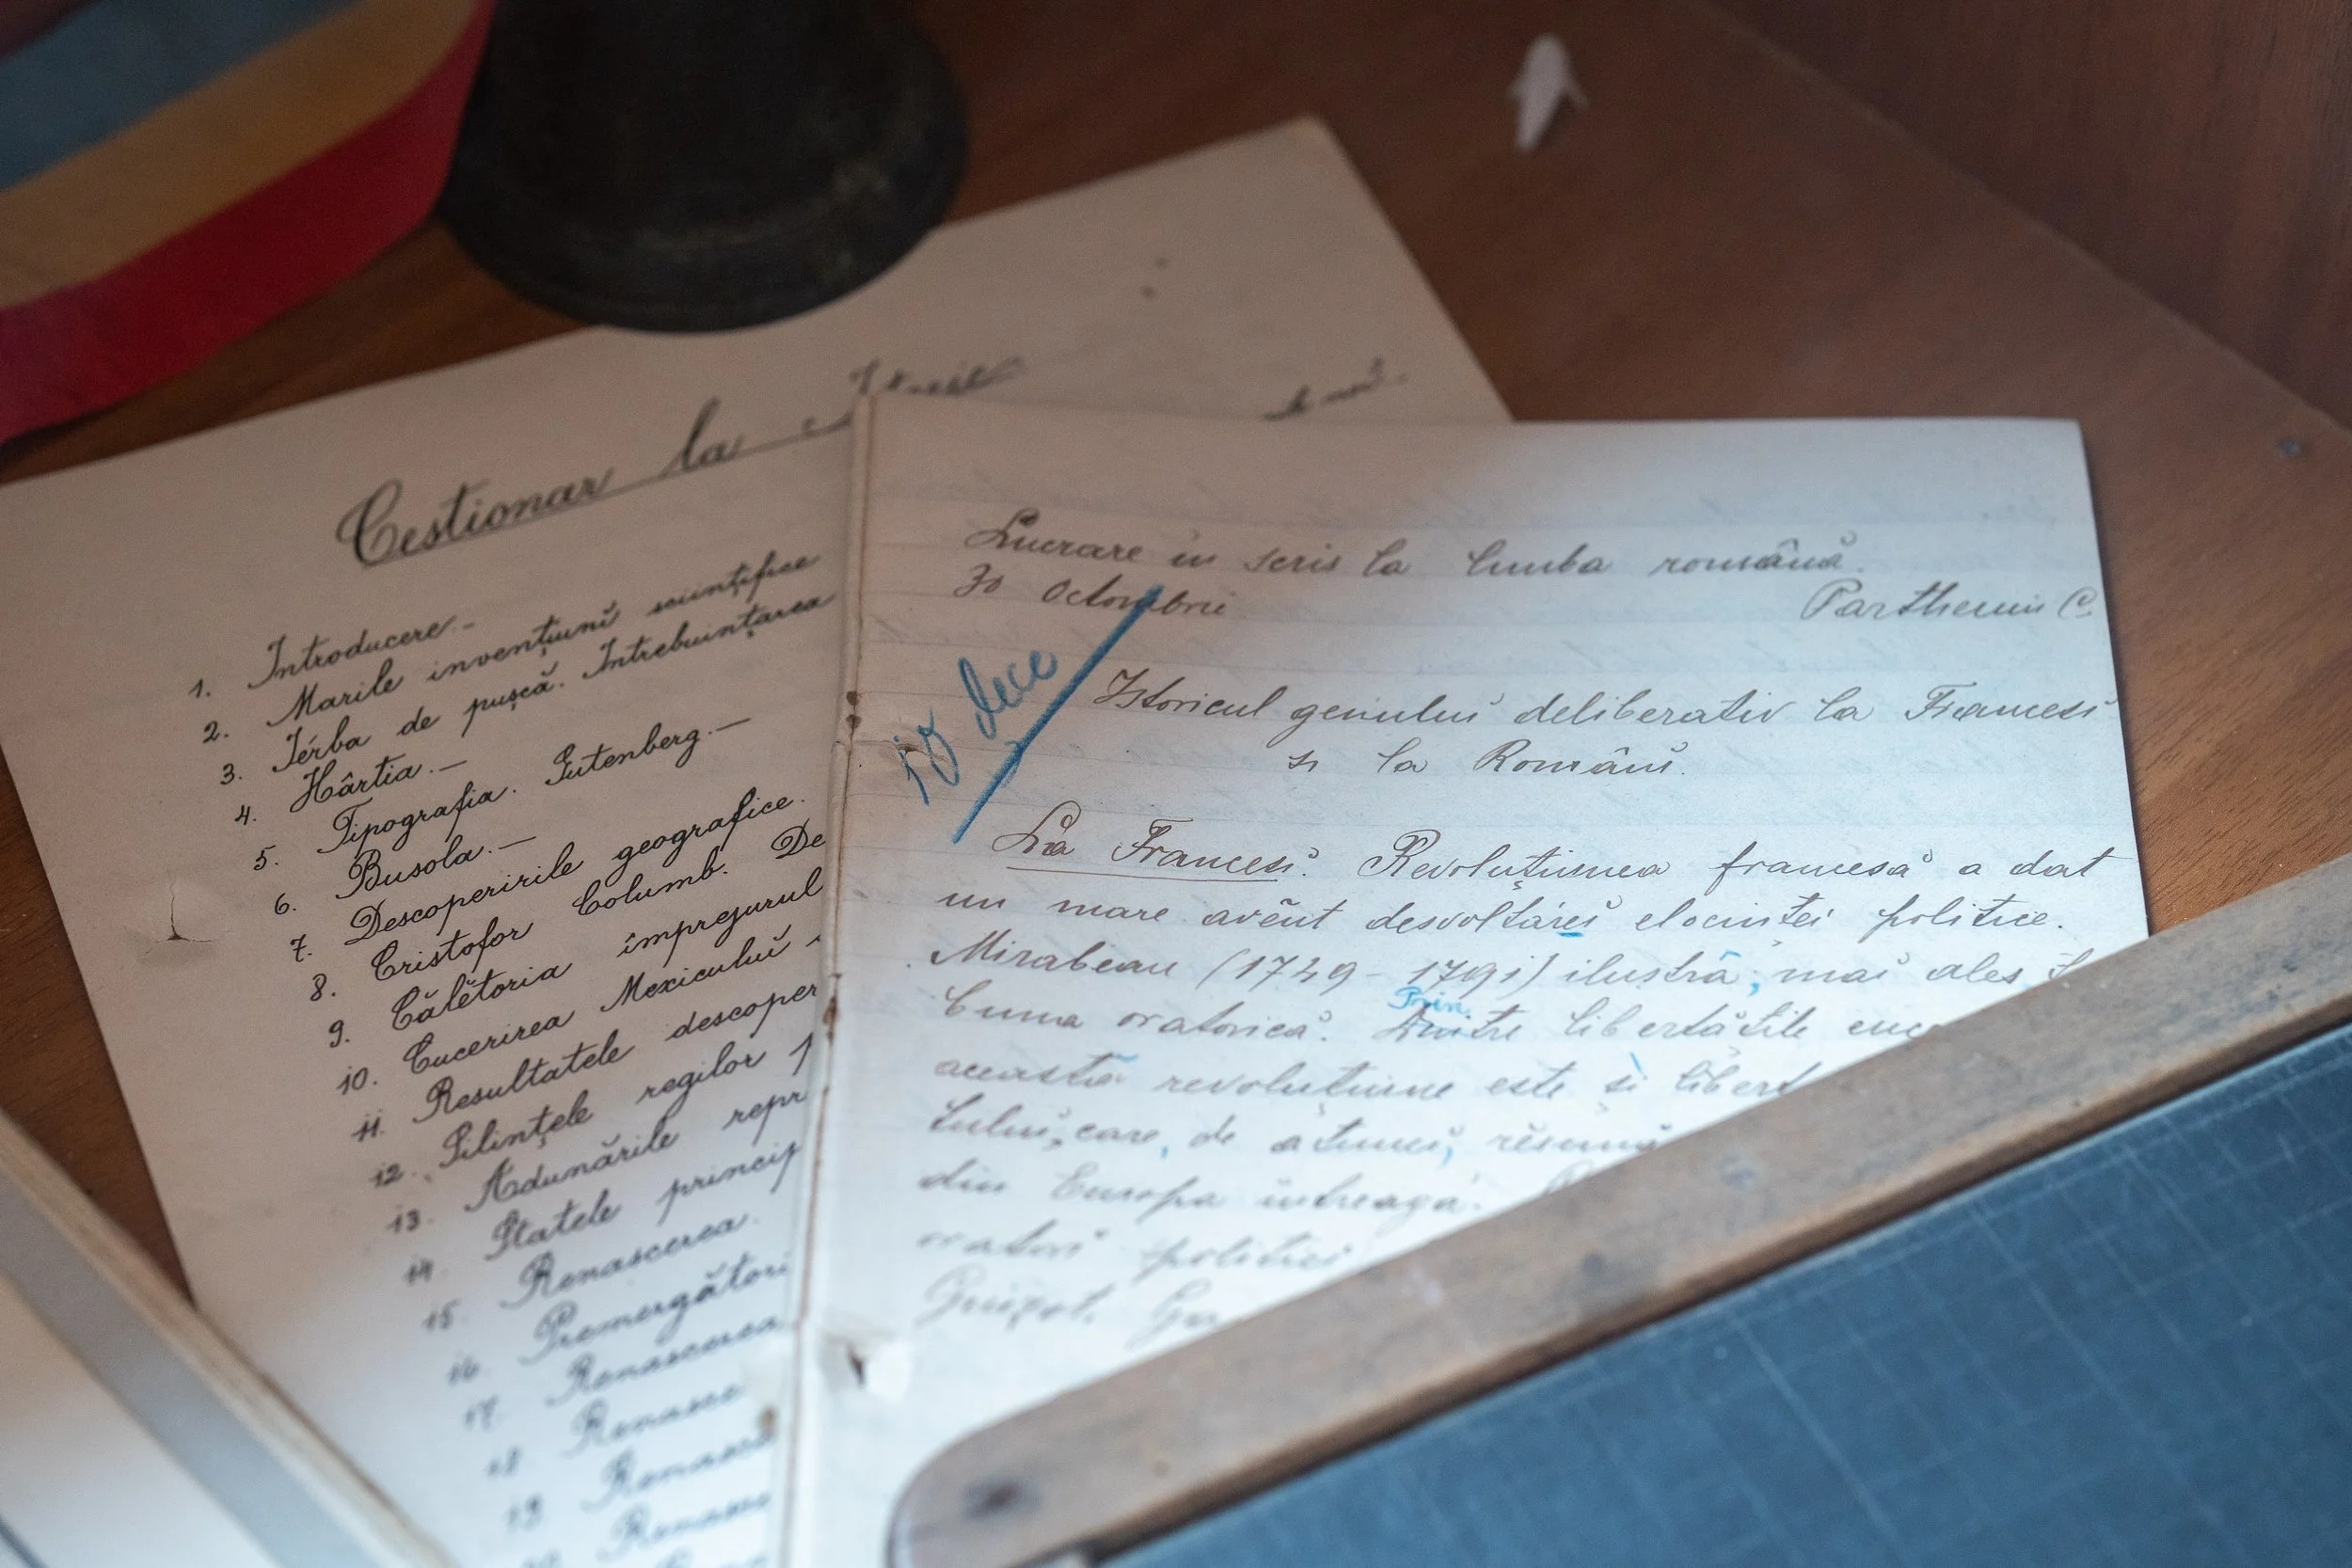 Cestionar la Istorie
1. Introducere.–
2. Marile invențiunĭ sciințifice
3. Iérba de pușcă. Intrebuințarea
4. Hârtia.–
5. Tipografia. Gutenberg.–
6. Busola.–
7. Descoperirile geografice.
8. Cristofor Columb. De
9. Călĕtoria împrejurul
10. Cucerirea Mexiculuĭ
11. Resultatele descoper
12. Silințele regilor
13. Adunările repr
14. Statele princip
15. Renascerea.
16. Premergători
17. Renascerea
18. Renasce
19. Renasce
Renasce
Lucrare in scris la limba română.
30 Octombrie
Parthenie C.
10 dece
Istoricul genuluĭ deliberativ la Francesĭ
si la Românĭ.
La Francesĭ. Revoluțiunea francesă a dat
un mare avênt desvoltăreĭ elocinței politice.
Mirabeau (1749–1791) ilustră, maĭ ales
buna oratorică. Prin Dintre libertățile
această revoluțiune este si libert
tuluĭ, care, de atuncĭ, rĕsună
din Europa intreagă.
oratorĭ politicĭ
Guizot,